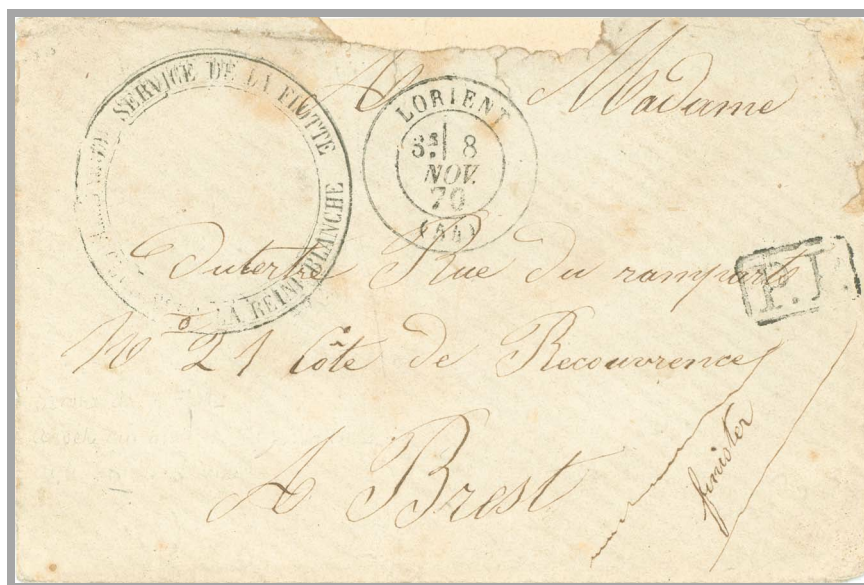 SERVICE DE LA FLOTTE
LA REINE BLANCHE
LORIENT
8
NOV.
70
(54)
A Madame
Dutertre Rue du ramparts
P.P.
N° 21 Côte de Recouvrence
A Brest
finister